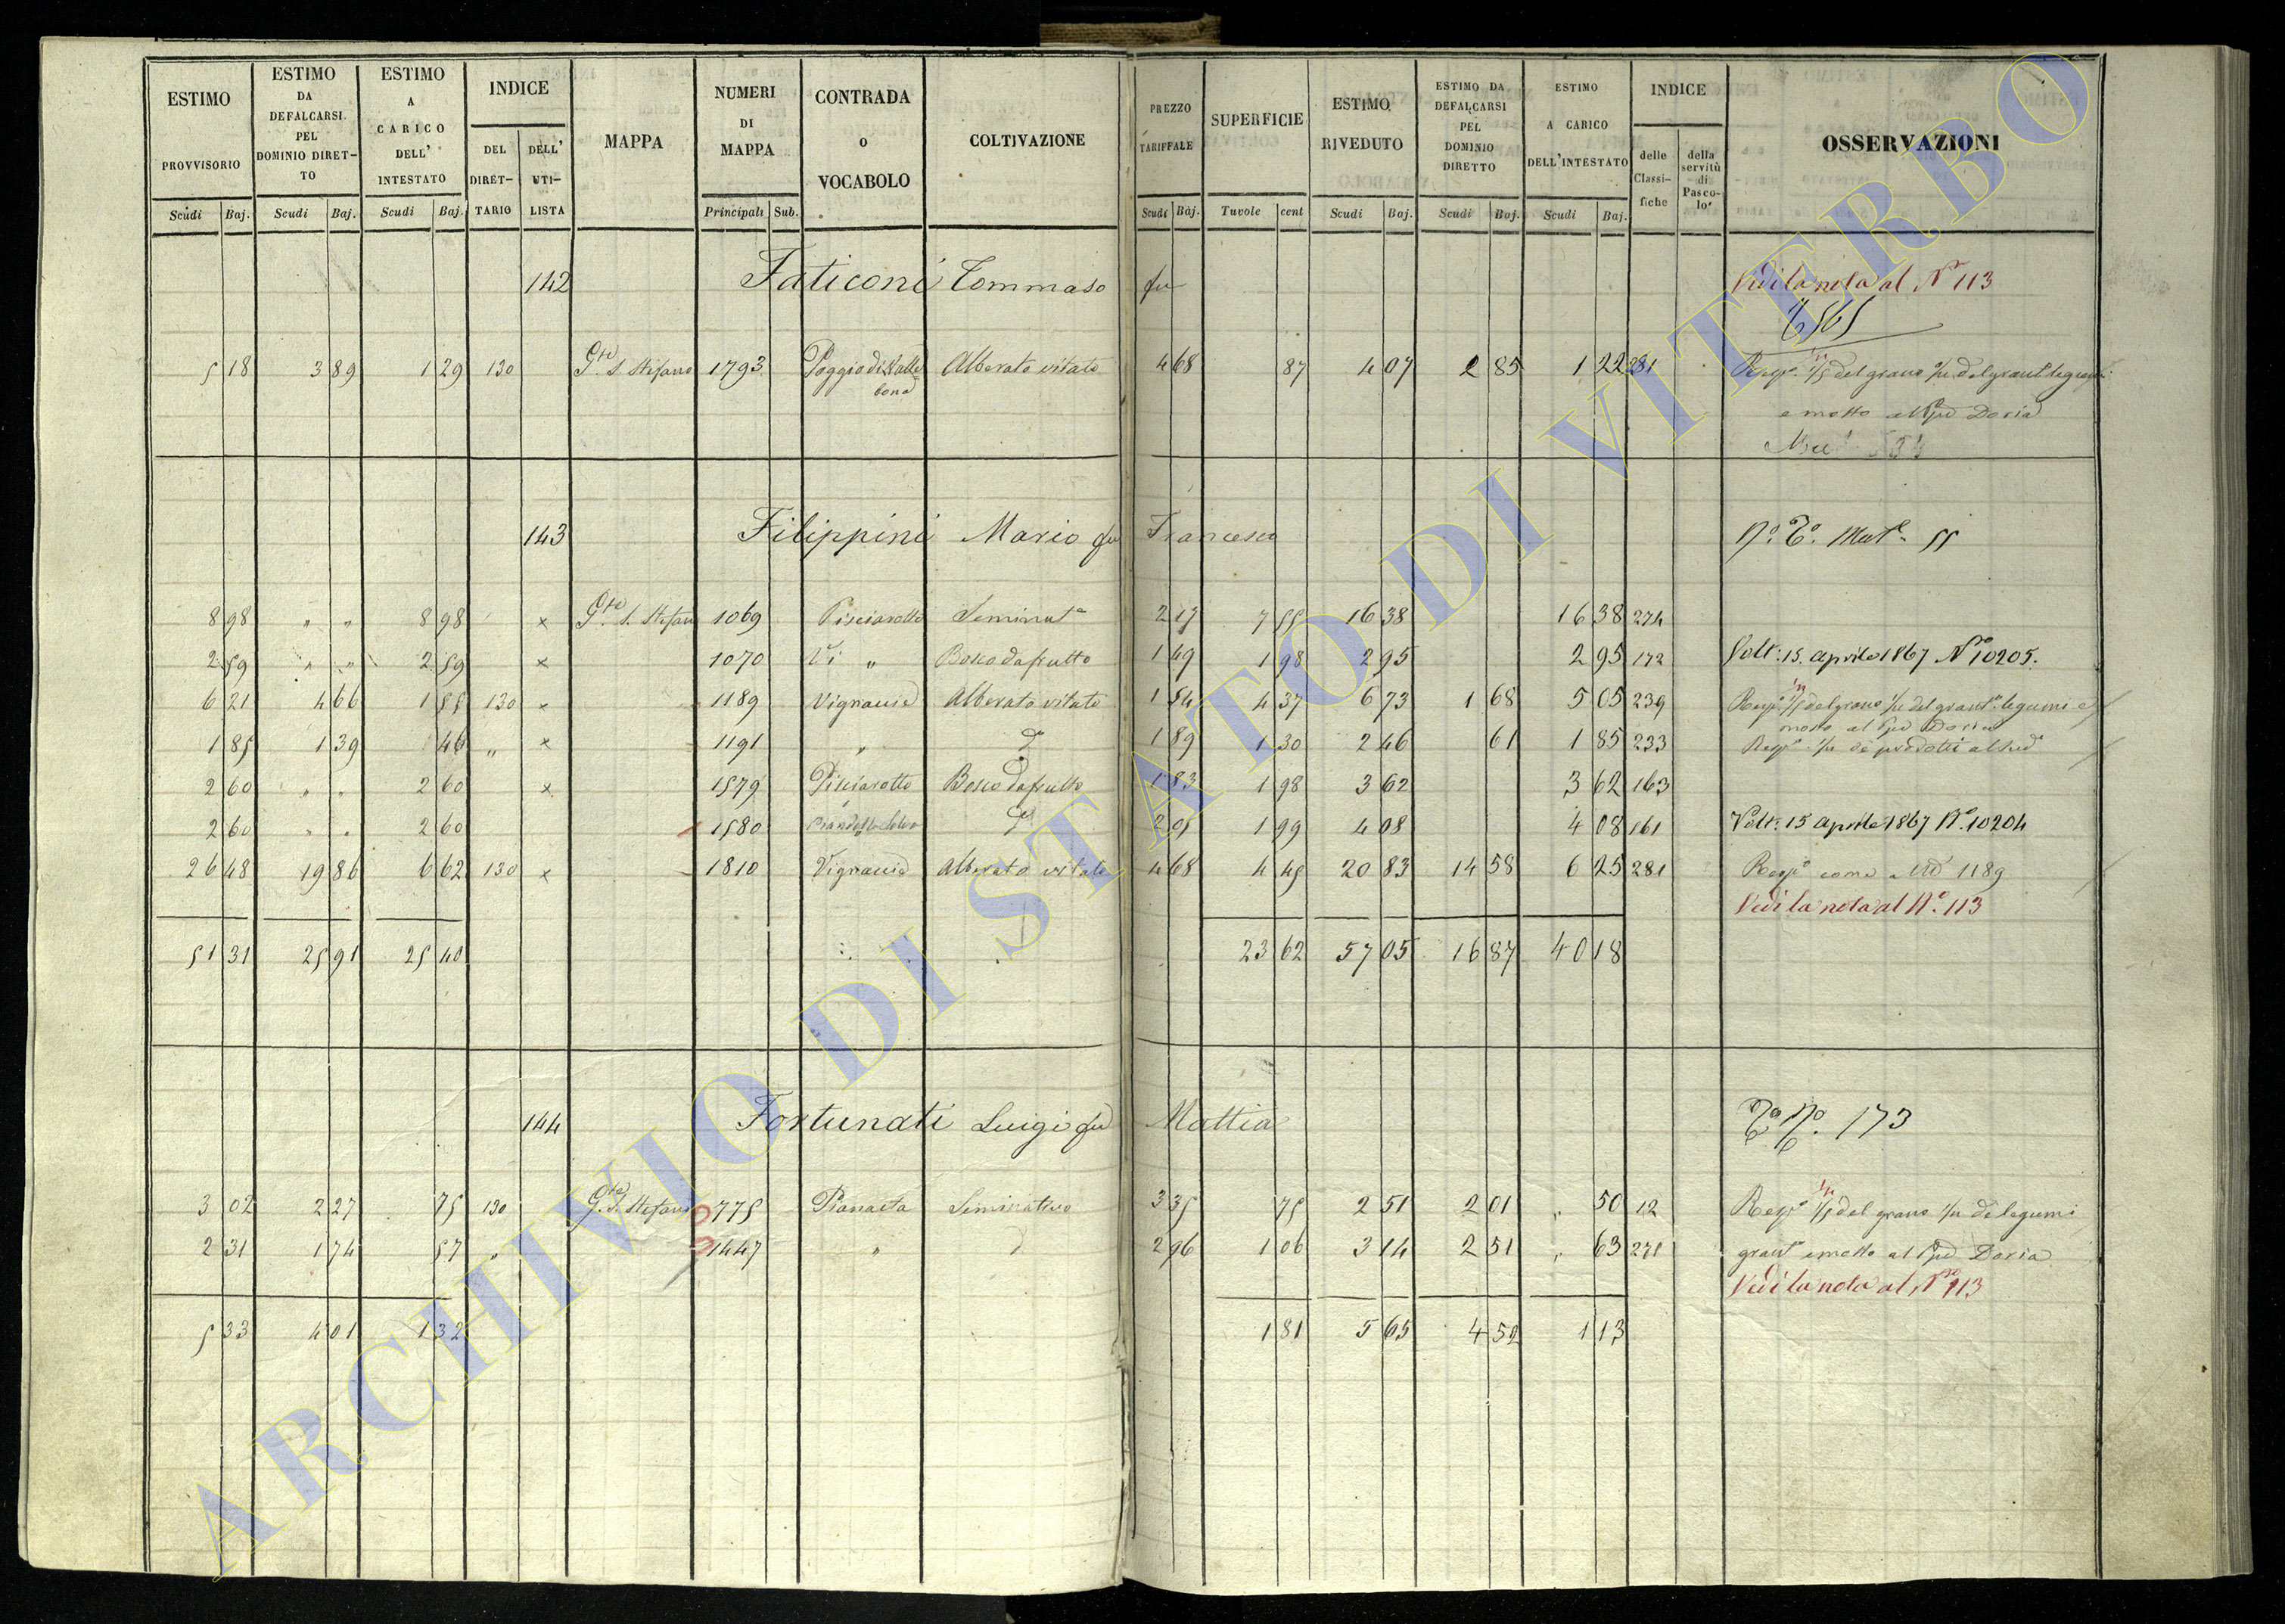 ESTIMO PROVVISORIO Scudi Baj. ESTIMO DA DEFALCARSI PEL DOMINIO DIRETTO Scudi Baj. ESTIMO A CARICO DELL' INTESTATO Scudi Baj. INDICE DEL DIRETTARIO DELL' UTILISTA MAPPA NUMERI DI MAPPA Principali Sub. CONTRADA O VOCABOLO COLTIVAZIONE PREZZO TARIFFALE Scudi Baj. SUPERFICIE Tavole cent ESTIMO RIVEDUTO Scudi Baj. ESTIMO DA DEFALCARSI PEL DOMINIO DIRETTO Scudi Baj. ESTIMO A CARICO DELL'INTESTATO Scudi Baj. INDICE delle Classifiche della servitù di Pascolo OSSERVAZIONI
142 Faticoni Tommaso fu Vedi la nota al N° 113
5 18 3 89 1 29 130 S. Stefano 1793 Poggio di Alberato vitato 4 68 87 4 07 2 85 1 22 281 1/5 del grano
bona e mosto al Doria
143 Filippini Mario fu Francesco 55
8 98 " " 8 98 x S. Stefano 1069 Pisciarotto Seminat° 2 17 7 55 16 38 16 38 274
2 59 " " 2 59 x 1070 Vi " Bosco da frutto 1 49 1 98 2 95 2 95 172 Volt: 15. aprile 1867 N° 10205.
6 21 4 66 1 55 130 x 1189 Vignaccie Alberato vitato 1 54 4 37 6 73 1 68 5 05 239 1/5 del grano legumi e
mosto al Doria
1 85 1 39 46 " x 1191 " 1 89 1 30 2 46 61 1 85 233
2 60 " " 2 60 x 1579 Pisciarotto Bosco da frutto 1 83 1 98 3 62 3 62 163
2 60 " " 2 60 1580 2 05 1 99 4 08 4 08 161 Volt: 15 aprile 1867 N° 10204
26 48 19 86 6 62 130 x 1810 Vignaccie Alberato vitato 4 68 4 45 20 83 14 58 6 25 281 come 1189
Vedi la nota al N° 113
51 31 25 91 25 40 23 62 57 05 16 87 40 18
144 Fortunati Luigi fu Mattia 173
3 02 2 27 75 130 S. Stefano 775 Pianaeta Seminativo 3 35 75 2 51 2 01 " 50 12 1/5 del grano legumi
2 31 1 74 57 " 1447 " 2 96 1 06 3 14 2 51 " 63 271 e mosto al Doria
Vedi la nota al N° 113
5 33 4 01 1 32 1 81 5 65 4 52 1 13
ARCHIVIO DI STATO DI VITERBO